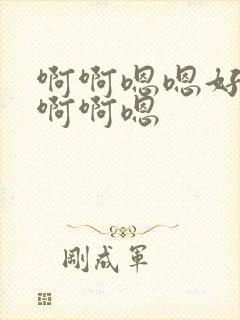 啊啊嗯嗯好
啊啊嗯
刚成军